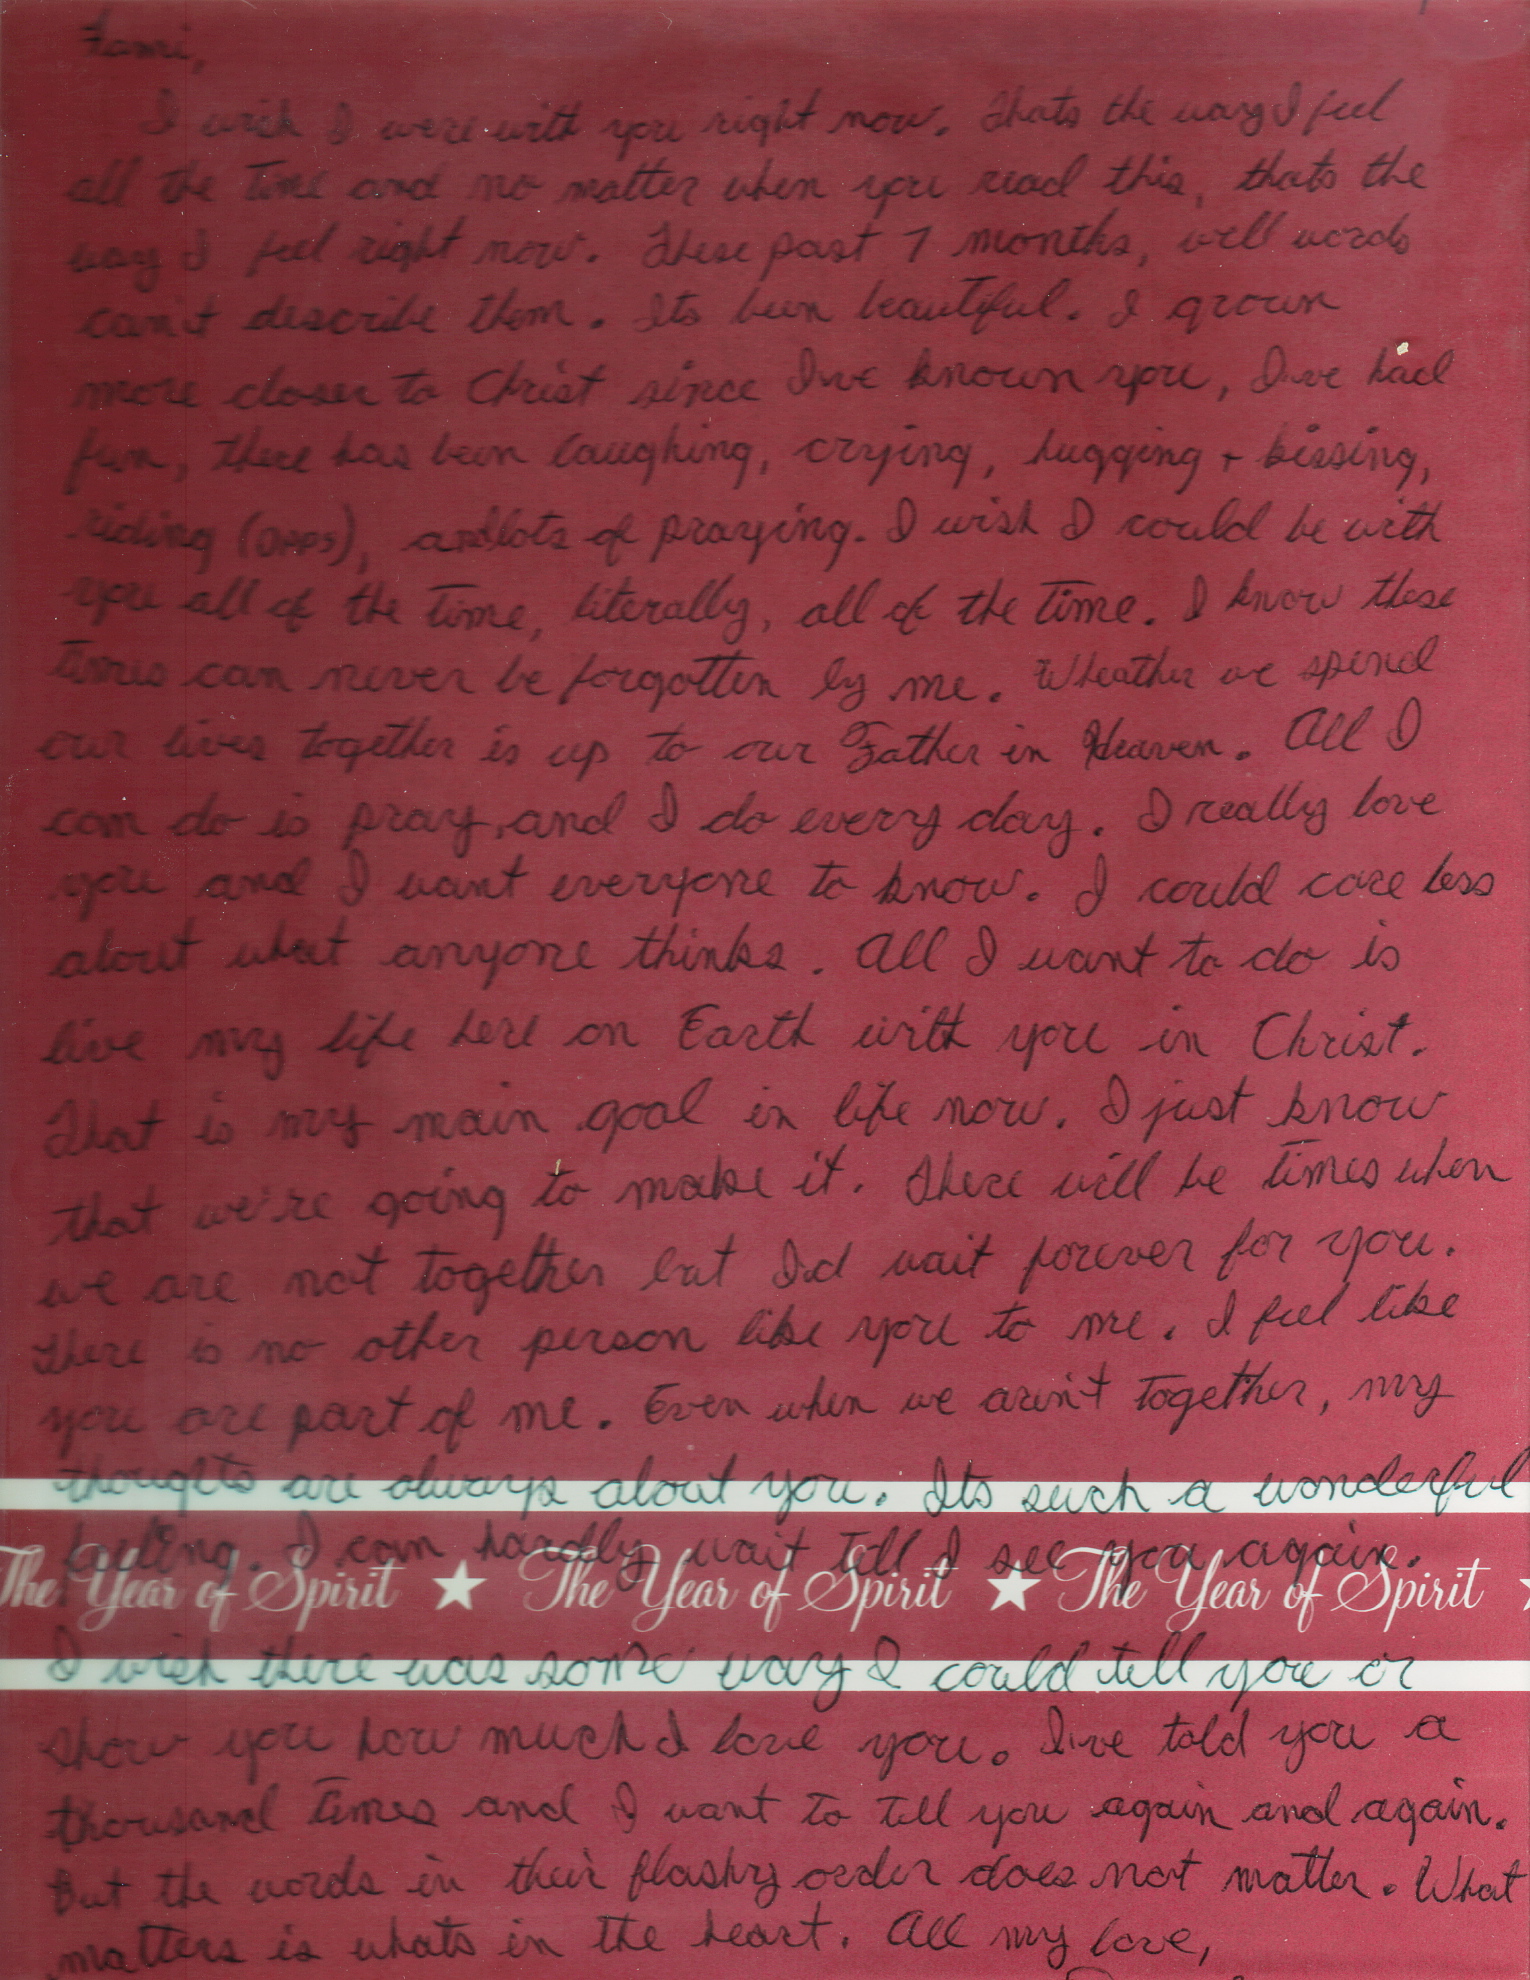 Tami,
I wish I were with you right now. Thats the way I feel
all the time and no matter when you read this, thats the
way I feel right now. These past 7 months, well words
can't describe them. Its been beautiful. I grown
more closer to Christ since I've known you, I've had
fun, there has been laughing, crying, hugging + kissing,
riding (oops), and lots of praying. I wish I could be with
you all of the time, literally, all of the time. I know these
times can never be forgotten by me. Wheather we spend
our lives together is up to our Father in Heaven. All I
can do is pray, and I do every day. I really love
you and I want everyone to know. I could care less
about what anyone thinks. All I want to do is
live my life here on Earth with you in Christ.
That is my main goal in life now. I just know
that we're going to make it. There will be times when
we are not together but I'd wait forever for you.
There is no other person like you to me. I feel like
you are part of me. Even when we aren't together, my
thoughts are always about you. Its such a wonderful
feeling. I can hardly wait till I see you again.
The Year of Spirit ★ The Year of Spirit ★ The Year of Spirit
I wish there was some way I could tell you or
show you how much I love you. I've told you a
thousand times and I want to tell you again and again.
But the words in their flashy order does not matter. What
matters is whats in the heart. All my love,